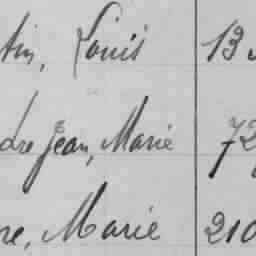 tin, Louis 13
dre Jean, Marie 72
re, Marie 210